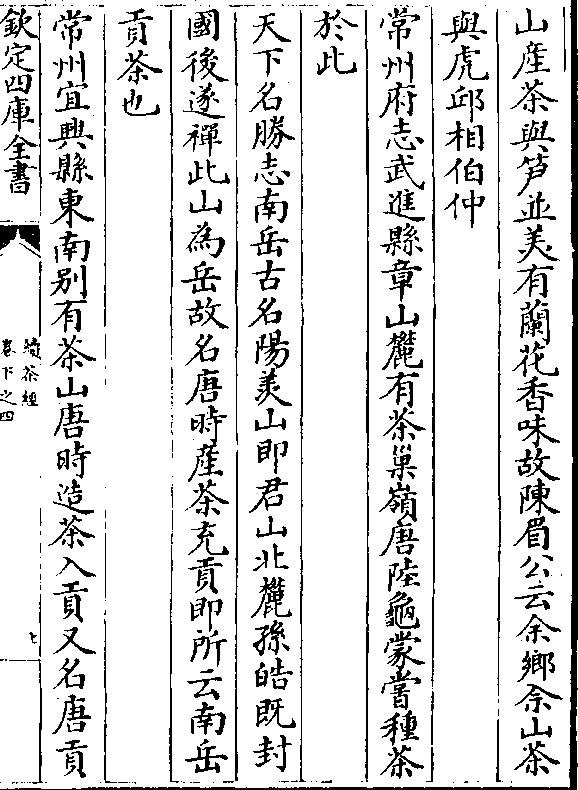 山產茶與笋並美有蘭花香味故陳眉公云余鄉佘山茶
與虎邱相伯仲
常州府志武進縣章山麓有茶巢嶺唐陸龜蒙嘗種茶
於此
天下名勝志南岳古名陽羡山即君山北麓孫皓既封
國後遂禪此山為岳故名唐時產茶充貢即所云南岳
貢茶也
常州宜興縣東南别有茶山唐時造茶入貢又名唐貢
欽定四庫全書
續茶經
卷下之四
七